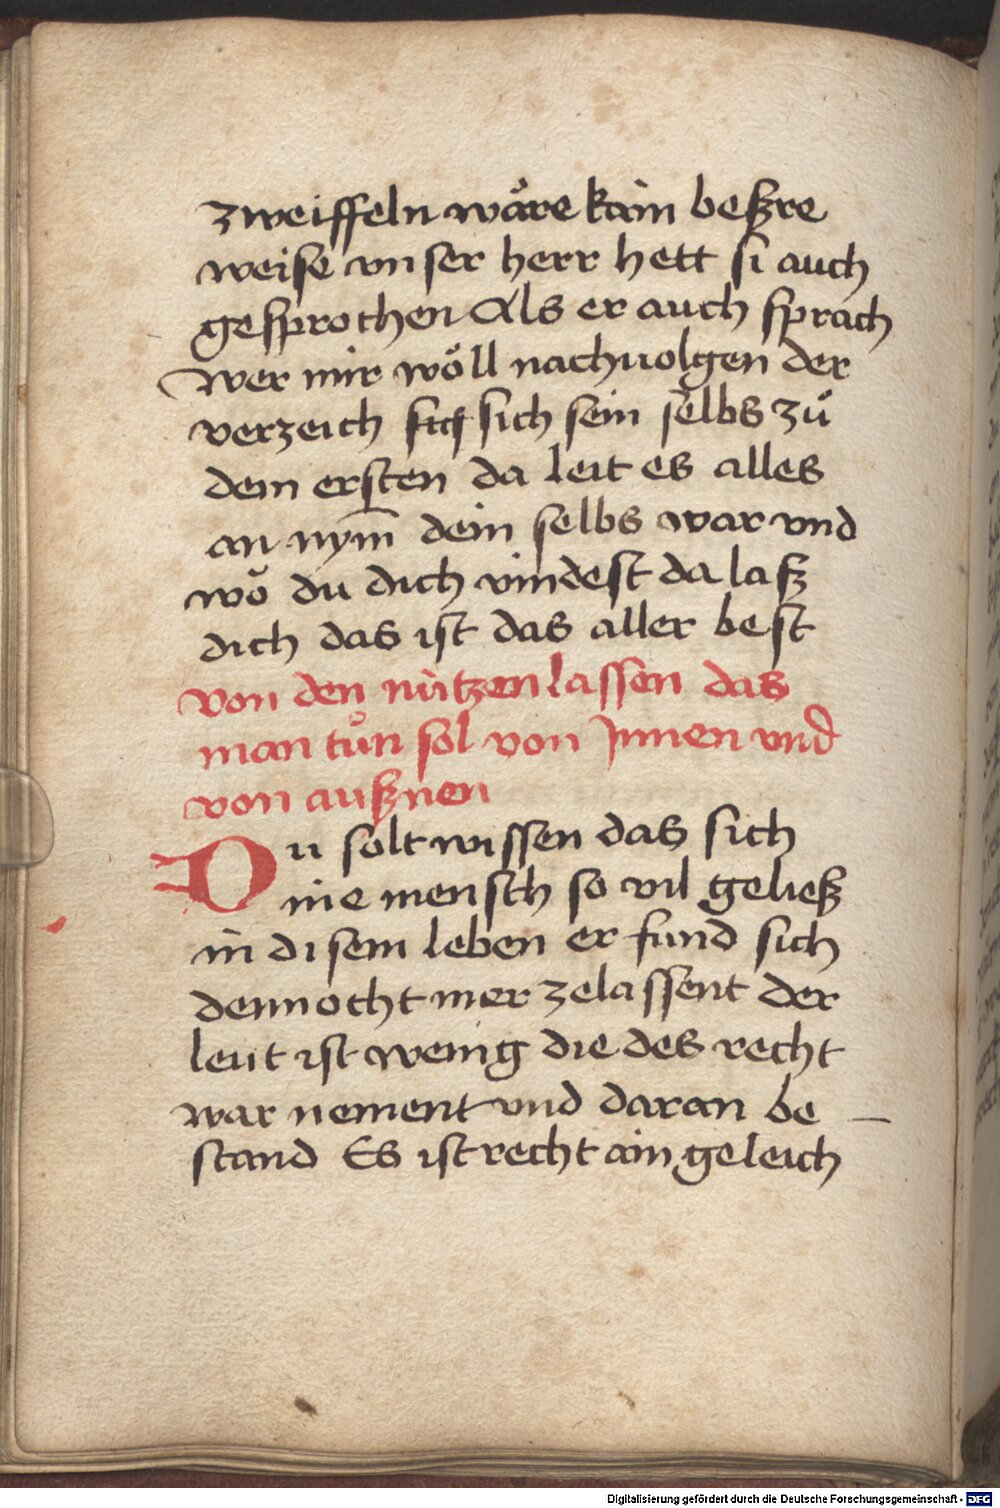 zweiffeln wåre kain beſzre
weise vnser herr hett si auch
gesprochen Als er auch sprach
wer mir wo̊ll nachuolgen der
verzeich sich sich sein selbs zů
dem ersten da leit es alles
an nym̅ dein selbs war vnd
wo du dich vindest da laſz
dich das ist das aller best
von den nützen lassen das
man tůn sol von Jnnen vnd
von auſznen
Du solt wissen das sich
nie mensch so vil gelieſz
in disem leben er fund sich
dennocht mer zelassent der
leut ist wenig die des recht
war nement vnd daran be
stand Es ist recht ain geleich
Digitalisierung gefördert durch die Deutsche Forschungsgemeinschaft - DFG